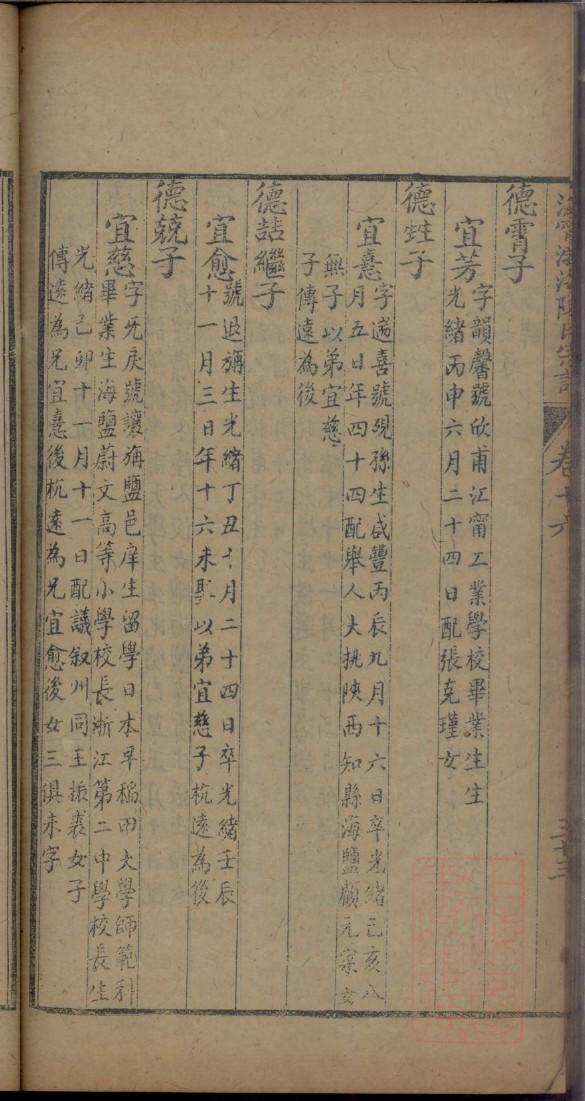 卷十六
德霄子
宜芳
字韻馨號欣甫江甯工業學校畢業生生
光緒丙申六月二十四日配張克瑾女
德蛀子
宜憙
字遹喜號硯孫生咸豐丙辰九月十六日卒光緒己亥八
月五日年四十四配舉人大挑陝西知縣海鹽顧元宷女
無子以弟宜慈
子傳遠為後
德喆繼子
宜愈
號退旃生光緒丁丑十月二十四日卒光緒壬辰
十一月三日年十六未聘以弟宜慈子杭遠為後
德兢子
宜慈
字旡戾號讓旃鹽邑庠生留學日本早稻田大學師範科
畢業生海鹽蔚文高等小學校長浙江第二中學校長生
光緒己卯十一月十一日配議敘州同王振裘女子
傳遠為兄宜憙後杭遠為兄宜愈後女三俱未字